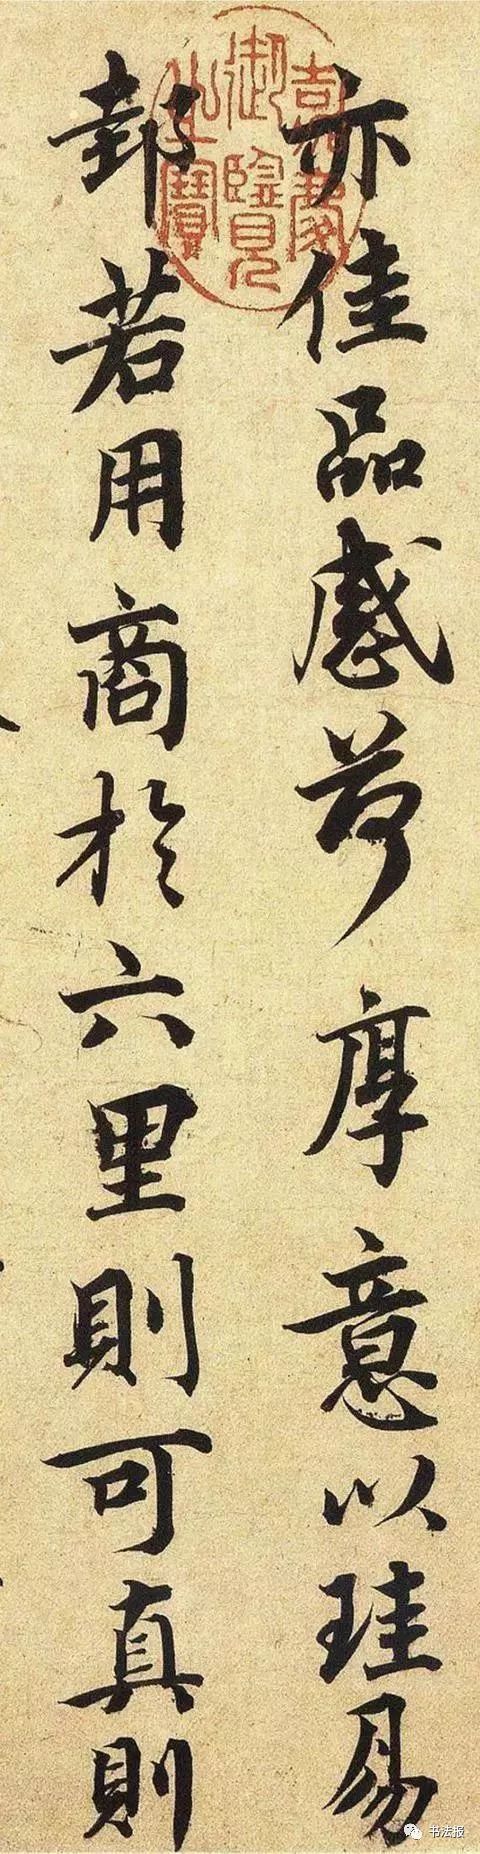 亦佳品感荷厚意以珪易
邽若用商於六里則可真則
嘉慶御覽之寶
书法报